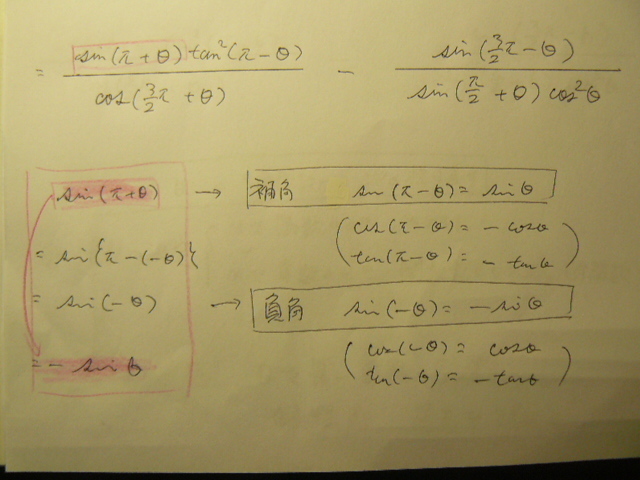 = sin(π+θ) tan²(π-θ) / cos(3/2π+θ) - sin(3/2π-θ) / sin(π/2+θ) cos²θ
sin(π+θ) → 補角 sin(π-θ) = sinθ
(cos(π-θ) = -cosθ
= sin{π-(-θ)} tan(π-θ) = -tanθ)
= sin(-θ) → 負角 sin(-θ) = -sinθ
(cos(-θ) = cosθ
= -sinθ tan(-θ) = -tanθ)